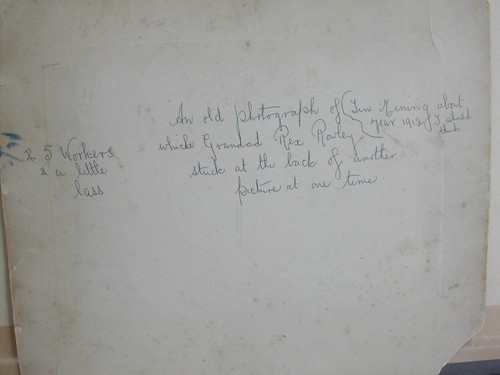 An old photograph of (Tin Mining about
year 1912 I should
think
which Grandad Rex Rowley
stuck at the back of another
picture at one time
& 5 Workers
& a little
lass